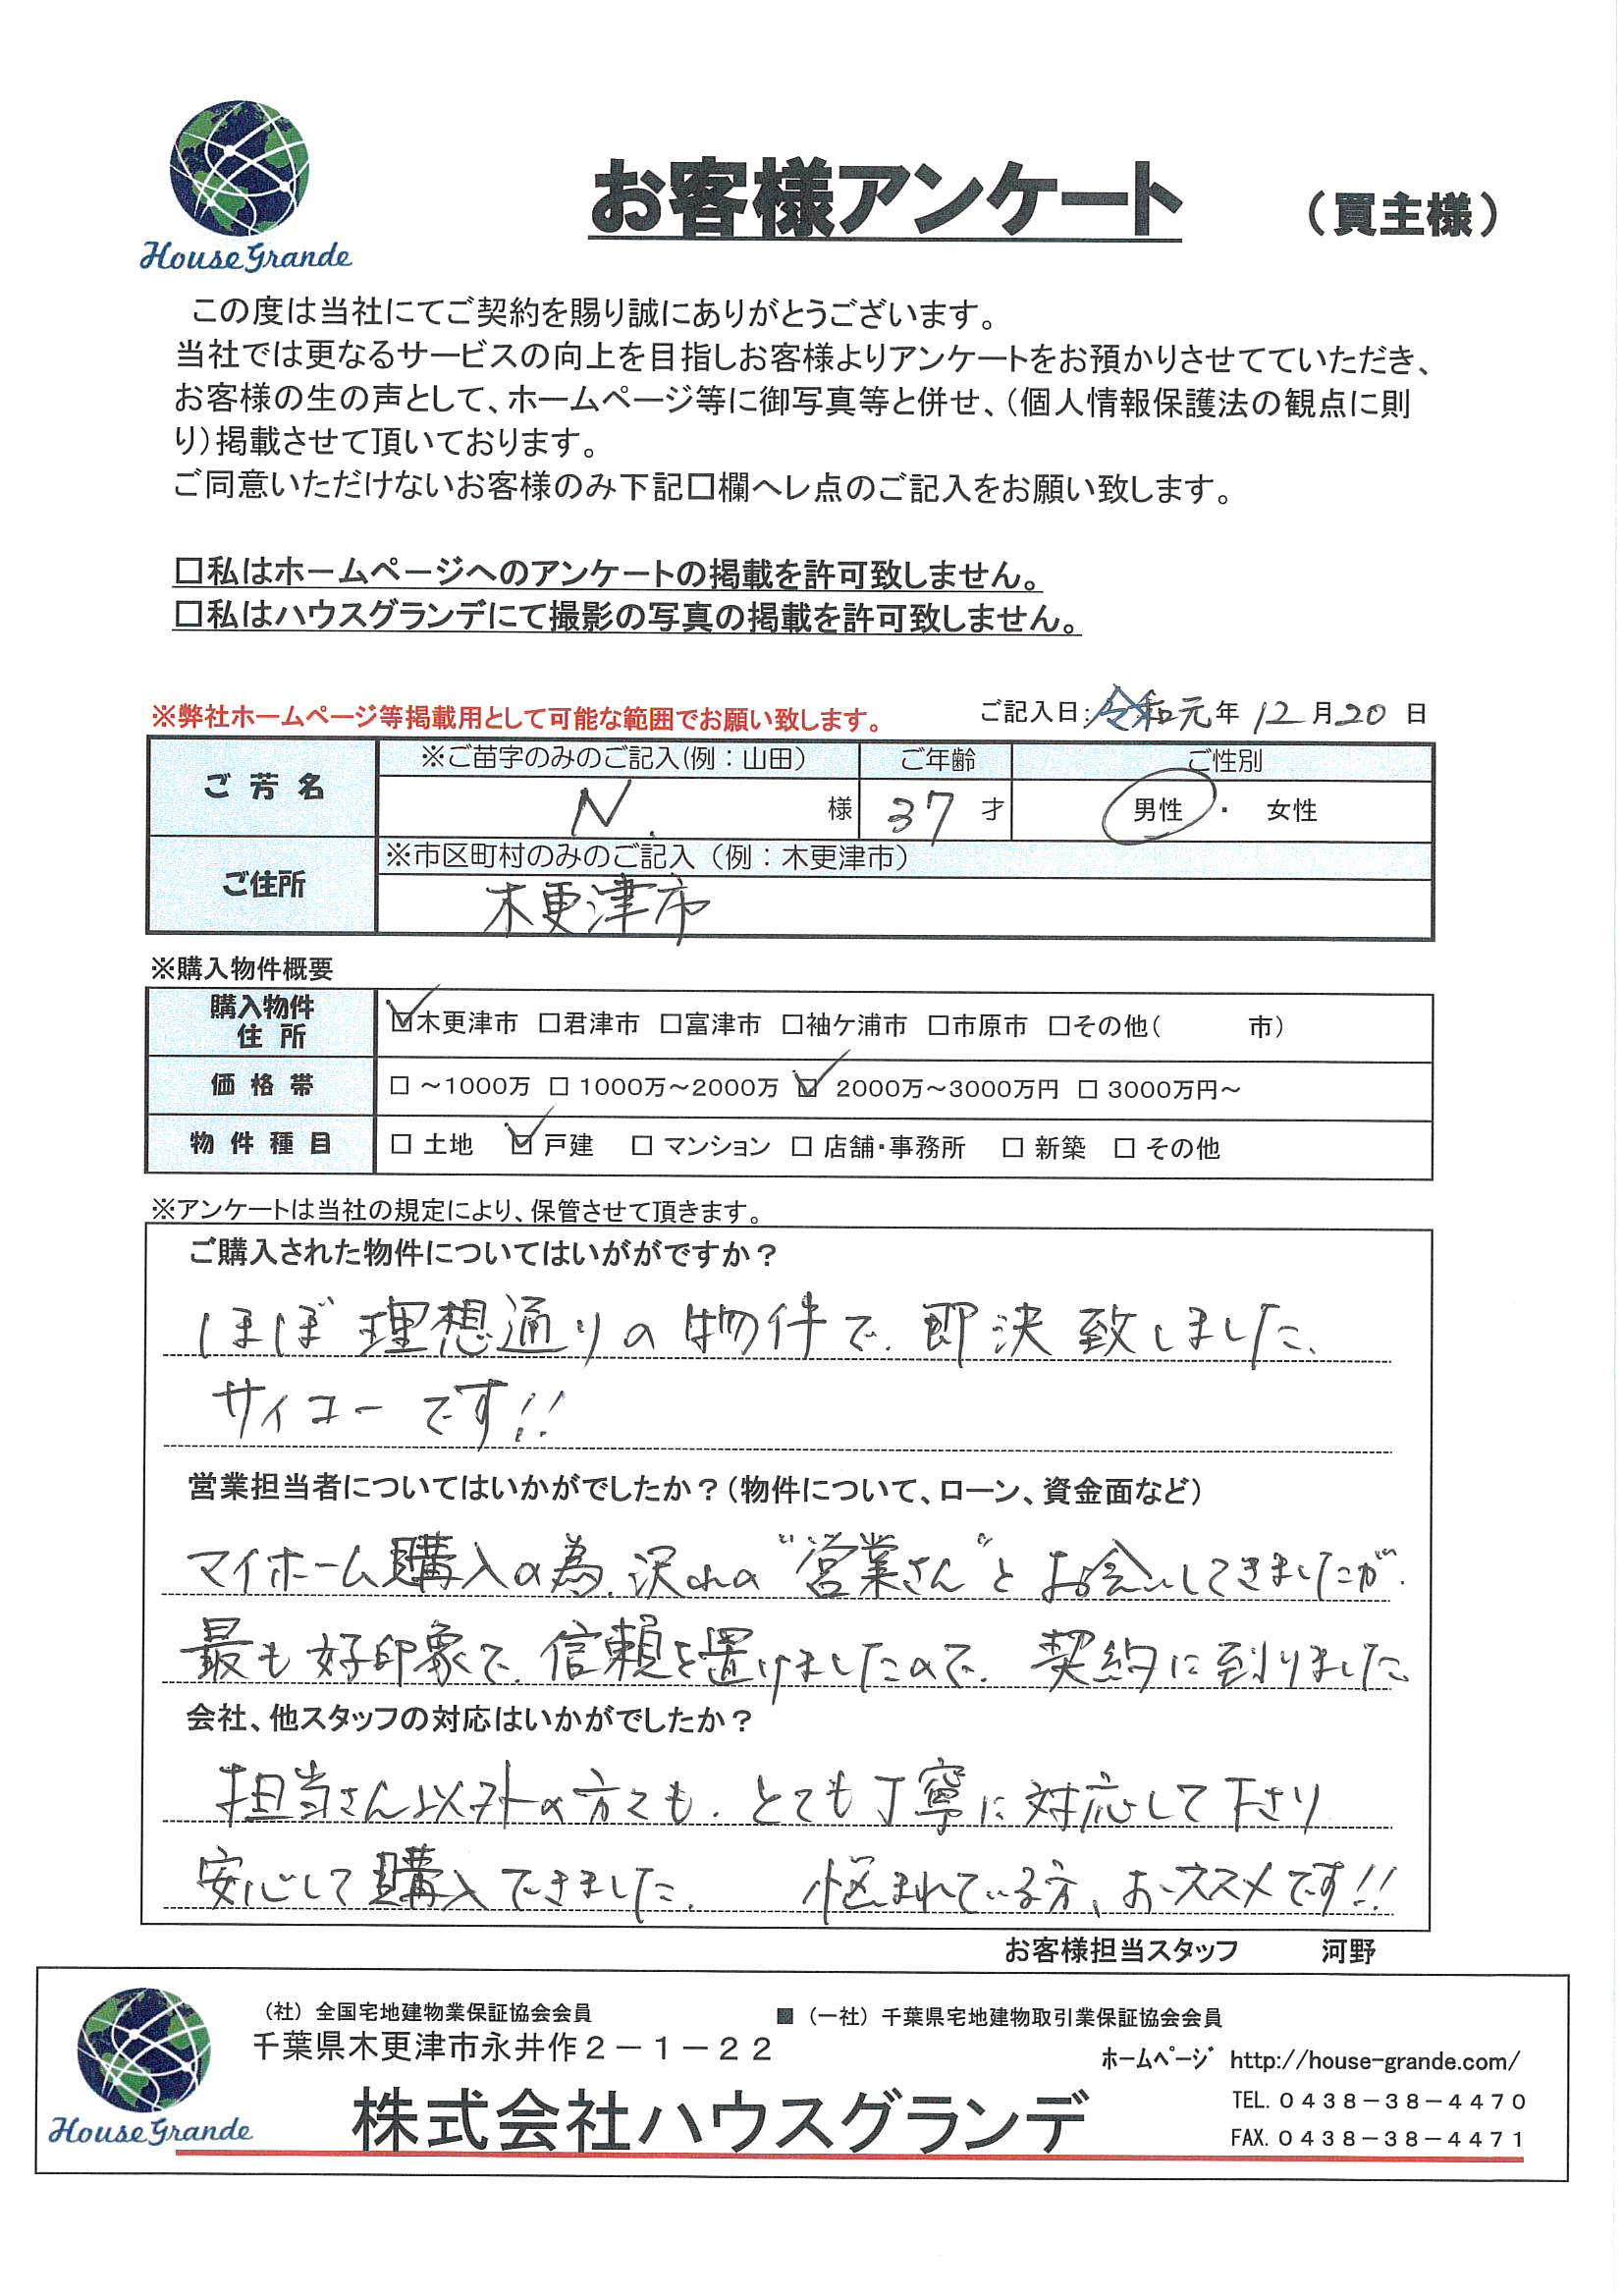 House Grande
お客様アンケート （買主様）
この度は当社にてご契約を賜り誠にありがとうございます。
当社では更なるサービスの向上を目指しお客様よりアンケートをお預かりさせてていただき、
お客様の生の声として、ホームページ等に御写真等と併せ、（個人情報保護法の観点に則
り）掲載させて頂いております。
ご同意いただけないお客様のみ下記口欄へレ点のご記入をお願い致します。
□私はホームページへのアンケートの掲載を許可致しません。
□私はハウスグランデにて撮影の写真の掲載を許可致しません。
※弊社ホームページ等掲載用として可能な範囲でお願い致します。 ご記入日：令和元年 12月20日
ご芳名 ※ご苗字のみのご記入(例：山田） ご年齢 ご性別
N. 様 37 才 男性 ・ 女性
ご住所 ※市区町村のみのご記入（例：木更津市）
木更津市
※購入物件概要
購入物件住所 ☑木更津市 □君津市 □富津市 □袖ケ浦市 □市原市 □その他（ 市）
価格帯 □ ～1000万 □ 1000万～2000万 ☑ 2000万～3000万円 □ 3000万円～
物件種目 □ 土地 ☑ 戸建 □ マンション □ 店舗・事務所 □ 新築 □ その他
※アンケートは当社の規定により、保管させて頂きます。
ご購入された物件についてはいががですか？
ほぼ理想通りの物件で、即決致しました、
サイコーです!!
営業担当者についてはいかがでしたか？（物件について、ローン、資金面など）
マイホーム購入の為、沢山の“営業さん”とお会いしてきましたが、
最も好印象で、信頼を置けましたので、契約に到りました
会社、他スタッフの対応はいかがでしたか？
担当さん以外の方々も、とても丁寧に対応して下さり
安心して購入できました。 悩まれている方、おススメです!!
お客様担当スタッフ 河野
House Grande
（社）全国宅地建物業保証協会会員 ■（一社）千葉県宅地建物取引業保証協会会員
千葉県木更津市永井作２－１－２２
ﾎｰﾑﾍﾟｰｼﾞ http://house-grande.com/
株式会社ハウスグランデ
TEL. ０４３８－３８－４４７０
FAX. ０４３８－３８－４４７１